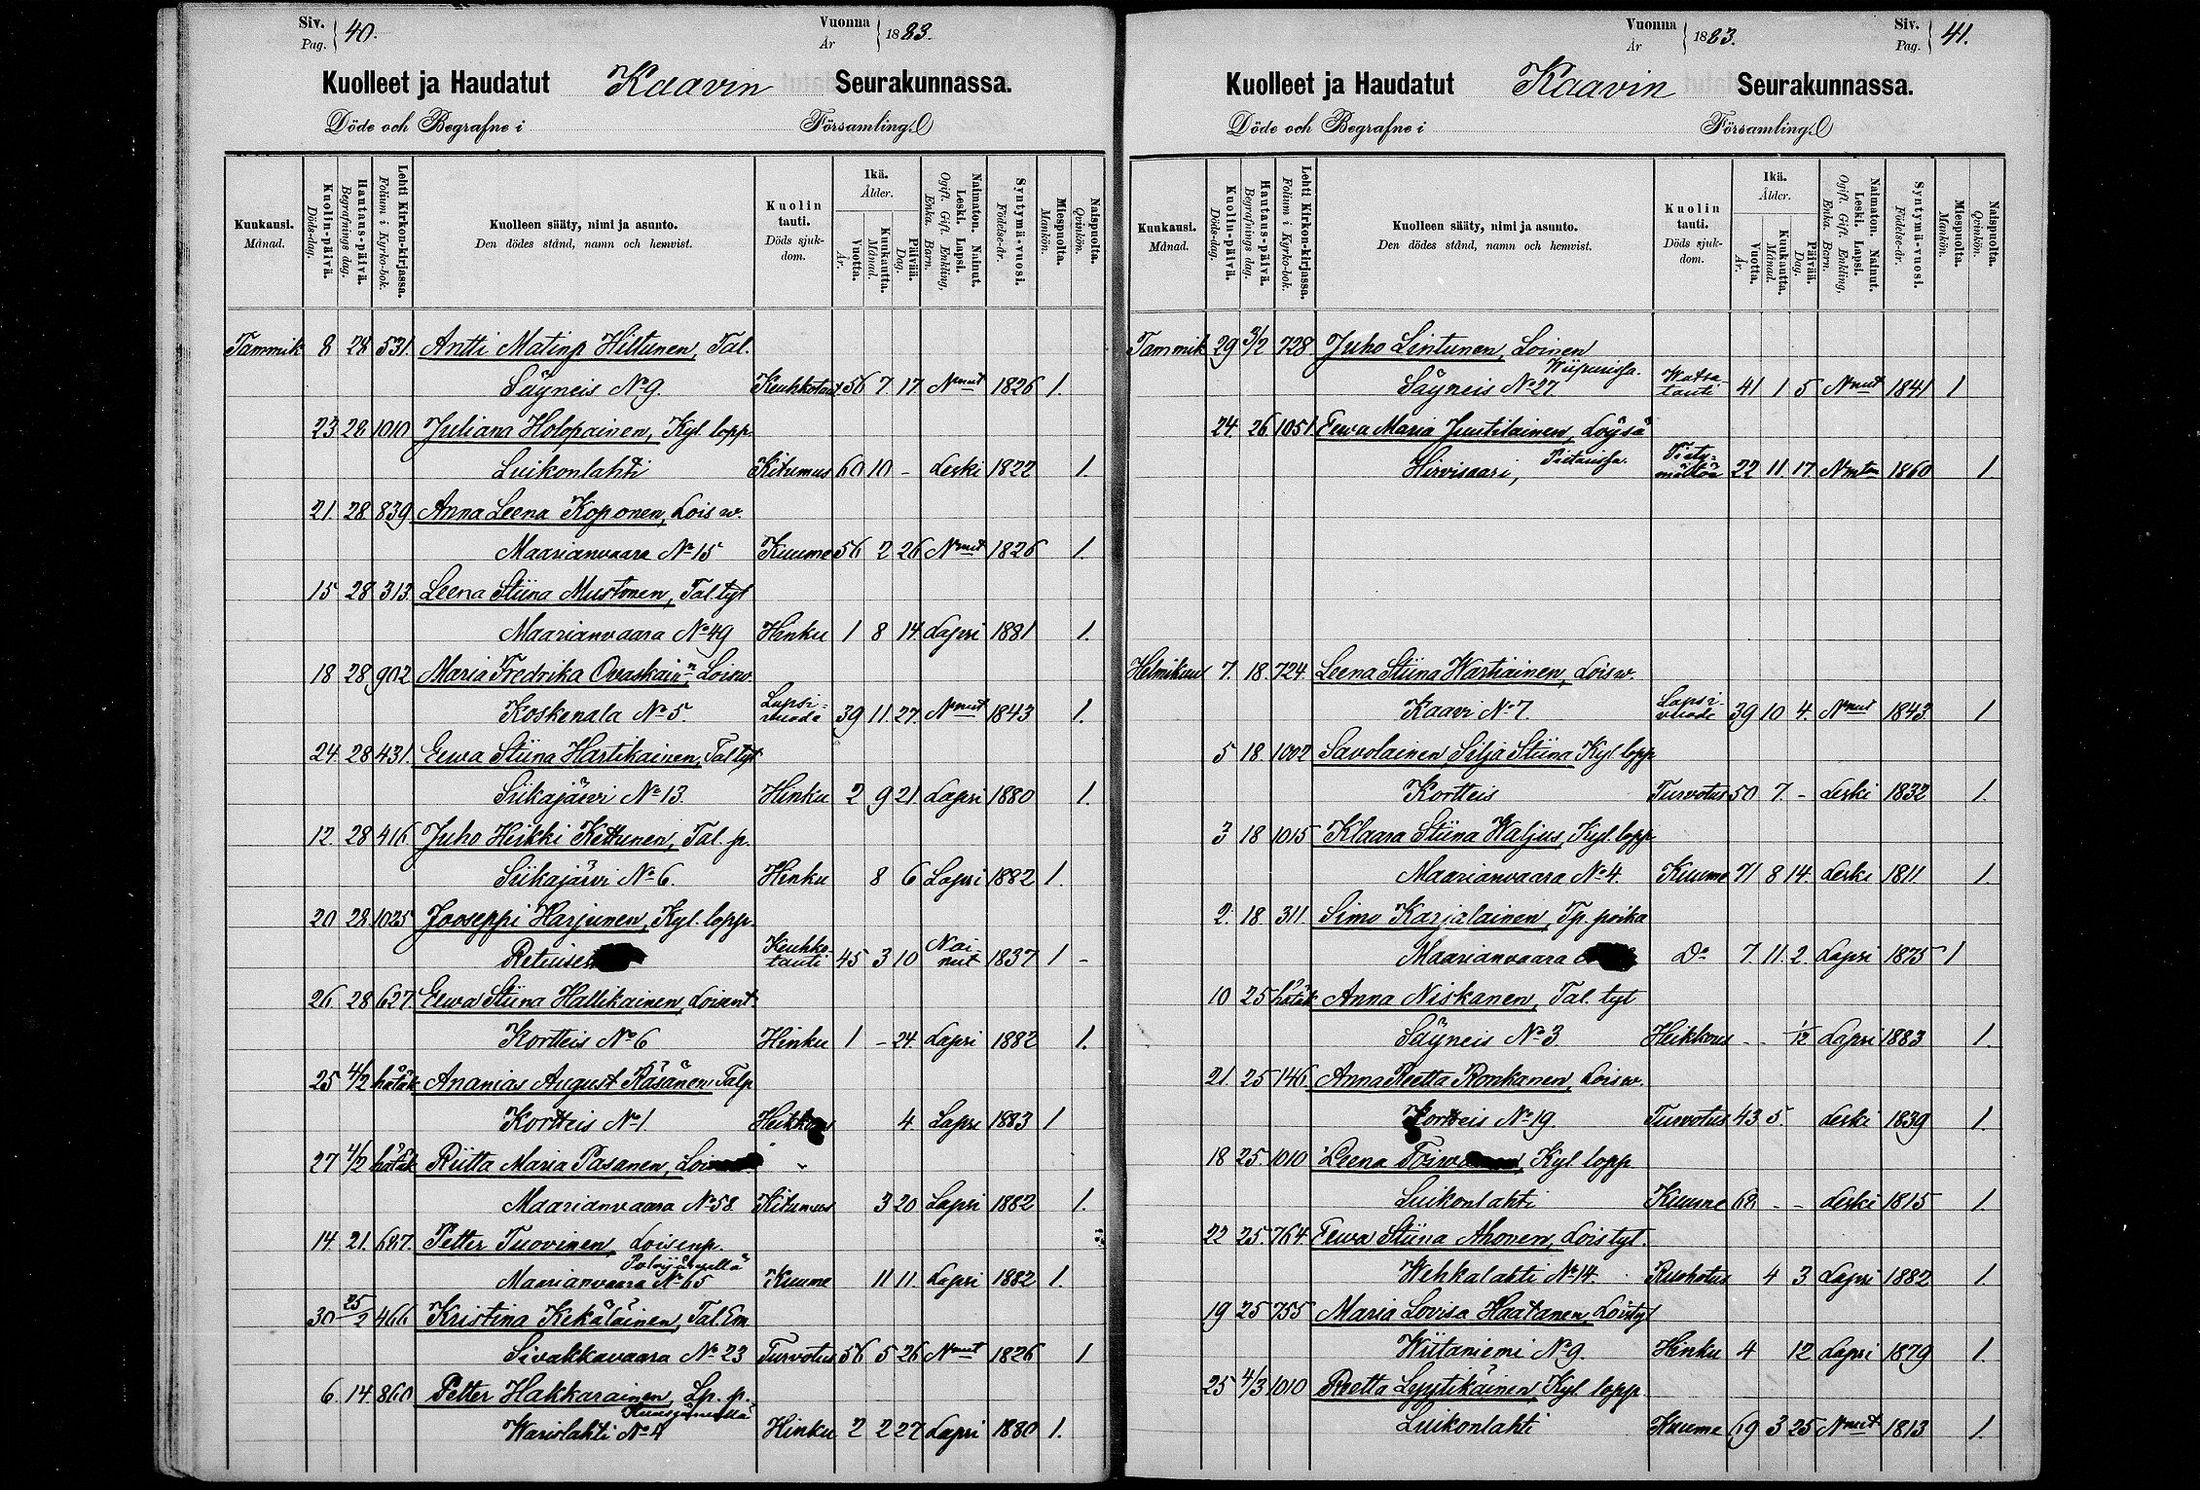 Siv. Pag. 40.
Vuonna År 1883.
Kuolleet ja Haudatut Kaavin Seurakunnassa.
Döde och Begrafne i Församling.
Kuukausi. Månad.
Kuolin-päivä. Döds-dag.
Hautaus-päivä. Begrafnings dag.
Lehti Kirkon-kirjassa. Folium i Kyrko-bok.
Kuolleen sääty, nimi ja asunto. Den dödes stånd, namn och hemvist.
Kuolin tauti. Döds sjuk-dom.
Ikä. Ålder.
Vuotta. År.
Kuukautta. Månad.
Päivää. Dag.
Naimaton. Nainut. Leski. Lapsi. Ogift. Gift. Enkling, Enka. Barn.
Syntymä-vuosi. Födelse-år.
Miespuolta. Mankön.
Naispuolta. Qvinkön.
Tammik 8 28 531 Antti Matinp Hiltunen, Tal.
Säyneis No 9. Keuhkotaut 56 7. 17. Nnut 1826 1.
23 28 1010 Juliana Holopainen, Kyl. lopp.
Luikonlahti Kitumus 60 10 - Leski 1822 1.
21. 28 839 Anna Leena Koponen, Lois w.
Maarianvaara No 15 Kuume 56 2 26 Nnut 1826 1.
15 28 313. Leena Stiina Mustonen, Tal. tyt
Maarianvaara No 49 Hinku 1 8 14 Lapsi 1881 1.
18 28 902 Maria Fredrika Ovaskain:n, Loisw.
Koskenala No 5. Lapsi-vuode 39 11 27. Nnut 1843 1.
24. 28 431. Eewa Stiina Hartikainen, Tal tyt
Siikajärvi No 13. Hinku 2 9 21. Lapsi 1880 1.
12. 28 416. Juho Heikki Kettunen, Tal. p.
Siikajärvi No 6. Hinku 8 6 Lapsi 1882 1.
20 28 1025 Jooseppi Harjunen, Kyl. lopp.
Keuhko-tauti 45 3 10 Nai-nut 1837 1 -
26. 28 627. Eewa Stiina Hallikainen,
Kortteis No 6 Hinku 1 - 24. Lapsi 1882 1.
25 4/2 håtäk Ananias August Räsänen, Talp
Kortteis No 1. 4. Lapsi 1883 1
27 4/2 håtäk Riitta Maria Pasanen,
Maarianvaara No 58 Kitumus 3 20 Lapsi 1882 1.
14. 21. 687. Petter Tuovinen, Loisenp.
Maarianvaara No 65 Kuume 11 11. Lapsi 1882 1.
30 25/2 466 Kristina Kekäläinen, Tal. Em
Sivakkavaara No 23 Turvotus 56 5 26 Nnut 1826 1
6. 14. 860 Petter Hakkarainen, Lp. p.
Warislahti No 4 Hinku 2 2 27 Lapsi 1880 1.
Vuonna År 1883.
Siv. Pag. 41.
Kuolleet ja Haudatut Kaavin Seurakunnassa.
Döde och Begrafne i Församling.
Kuukausi. Månad.
Kuolin-päivä. Döds-dag.
Hautaus-päivä. Begrafnings dag.
Lehti Kirkon-kirjassa. Folium i Kyrko-bok.
Kuolleen sääty, nimi ja asunto. Den dödes stånd, namn och hemvist.
Kuolin tauti. Döds sjuk-dom.
Ikä. Ålder.
Vuotta. År.
Kuukautta. Månad.
Päivää. Dag.
Naimaton. Nainut. Leski. Lapsi. Ogift. Gift. Enkling, Enka. Barn.
Syntymä-vuosi. Födelse-år.
Miespuolta. Mankön.
Naispuolta. Qvinkön.
Tammik 29 728 Juho Lintunen, Loinen
Wiipurissa.
Säyneis No 27. Watsa-tauti 41 1 5 Nnut 1841 1
24. 26 1051 Eewa Maria Juutilainen, Löysä
Hirvisaari, Pietarissa. Tiety-mätöin 22 11. 17. Nmton 1860 1.
Helmikuu 7. 18. 724. Leena Stiina Wartiainen, Loisw.
Kaavi No 7. Lapsi-vuode 39 10 4. Nnut 1843. 1
5 18. 1002 Savolainen, Silja Stiina Kyl. lopp
Kortteis Turvotus 50 7. - Leski 1832 1.
3 18 1015 Klaara Stiina Waljus, Kyl. lopp
Maarianvaara No 4. Kuume 71 8 14. Leski 1811 1.
2. 18 311. Simo Karjalainen, Tp. poika
Maarianvaara Do 7. 11. 2. Lapsi 1875 1
10 25 håtäk Anna Niskanen, Tal. tyt
Säyneis No 3 Heikkous - - 1/2 Lapsi 1883 1.
21. 25 146 Anna Reetta Ronkanen, Loisw.
Kortteis No 19. Turvotus 43 5. Leski 1839 1.
18 25. 1010 Leena Kyl lopp
Luikonlahti Kuume 68 - - Leski 1815 1.
22 25. 764 Eewa Stiina Ahonen, Lois tyt.
Wehkalahti No 14. Ruohotus 4 3 Lapsi 1882 1
19 25 755 Maria Lovisa Haatanen, Loistyt
Wiitaniemi No 9. Hinku 4 12 Lapsi 1879 1.
25 4/3 1010 Reetta Lyytikäinen, Kyl lopp.
Luikonlahti Kuume 69 3 25 Nnut 1813 1.